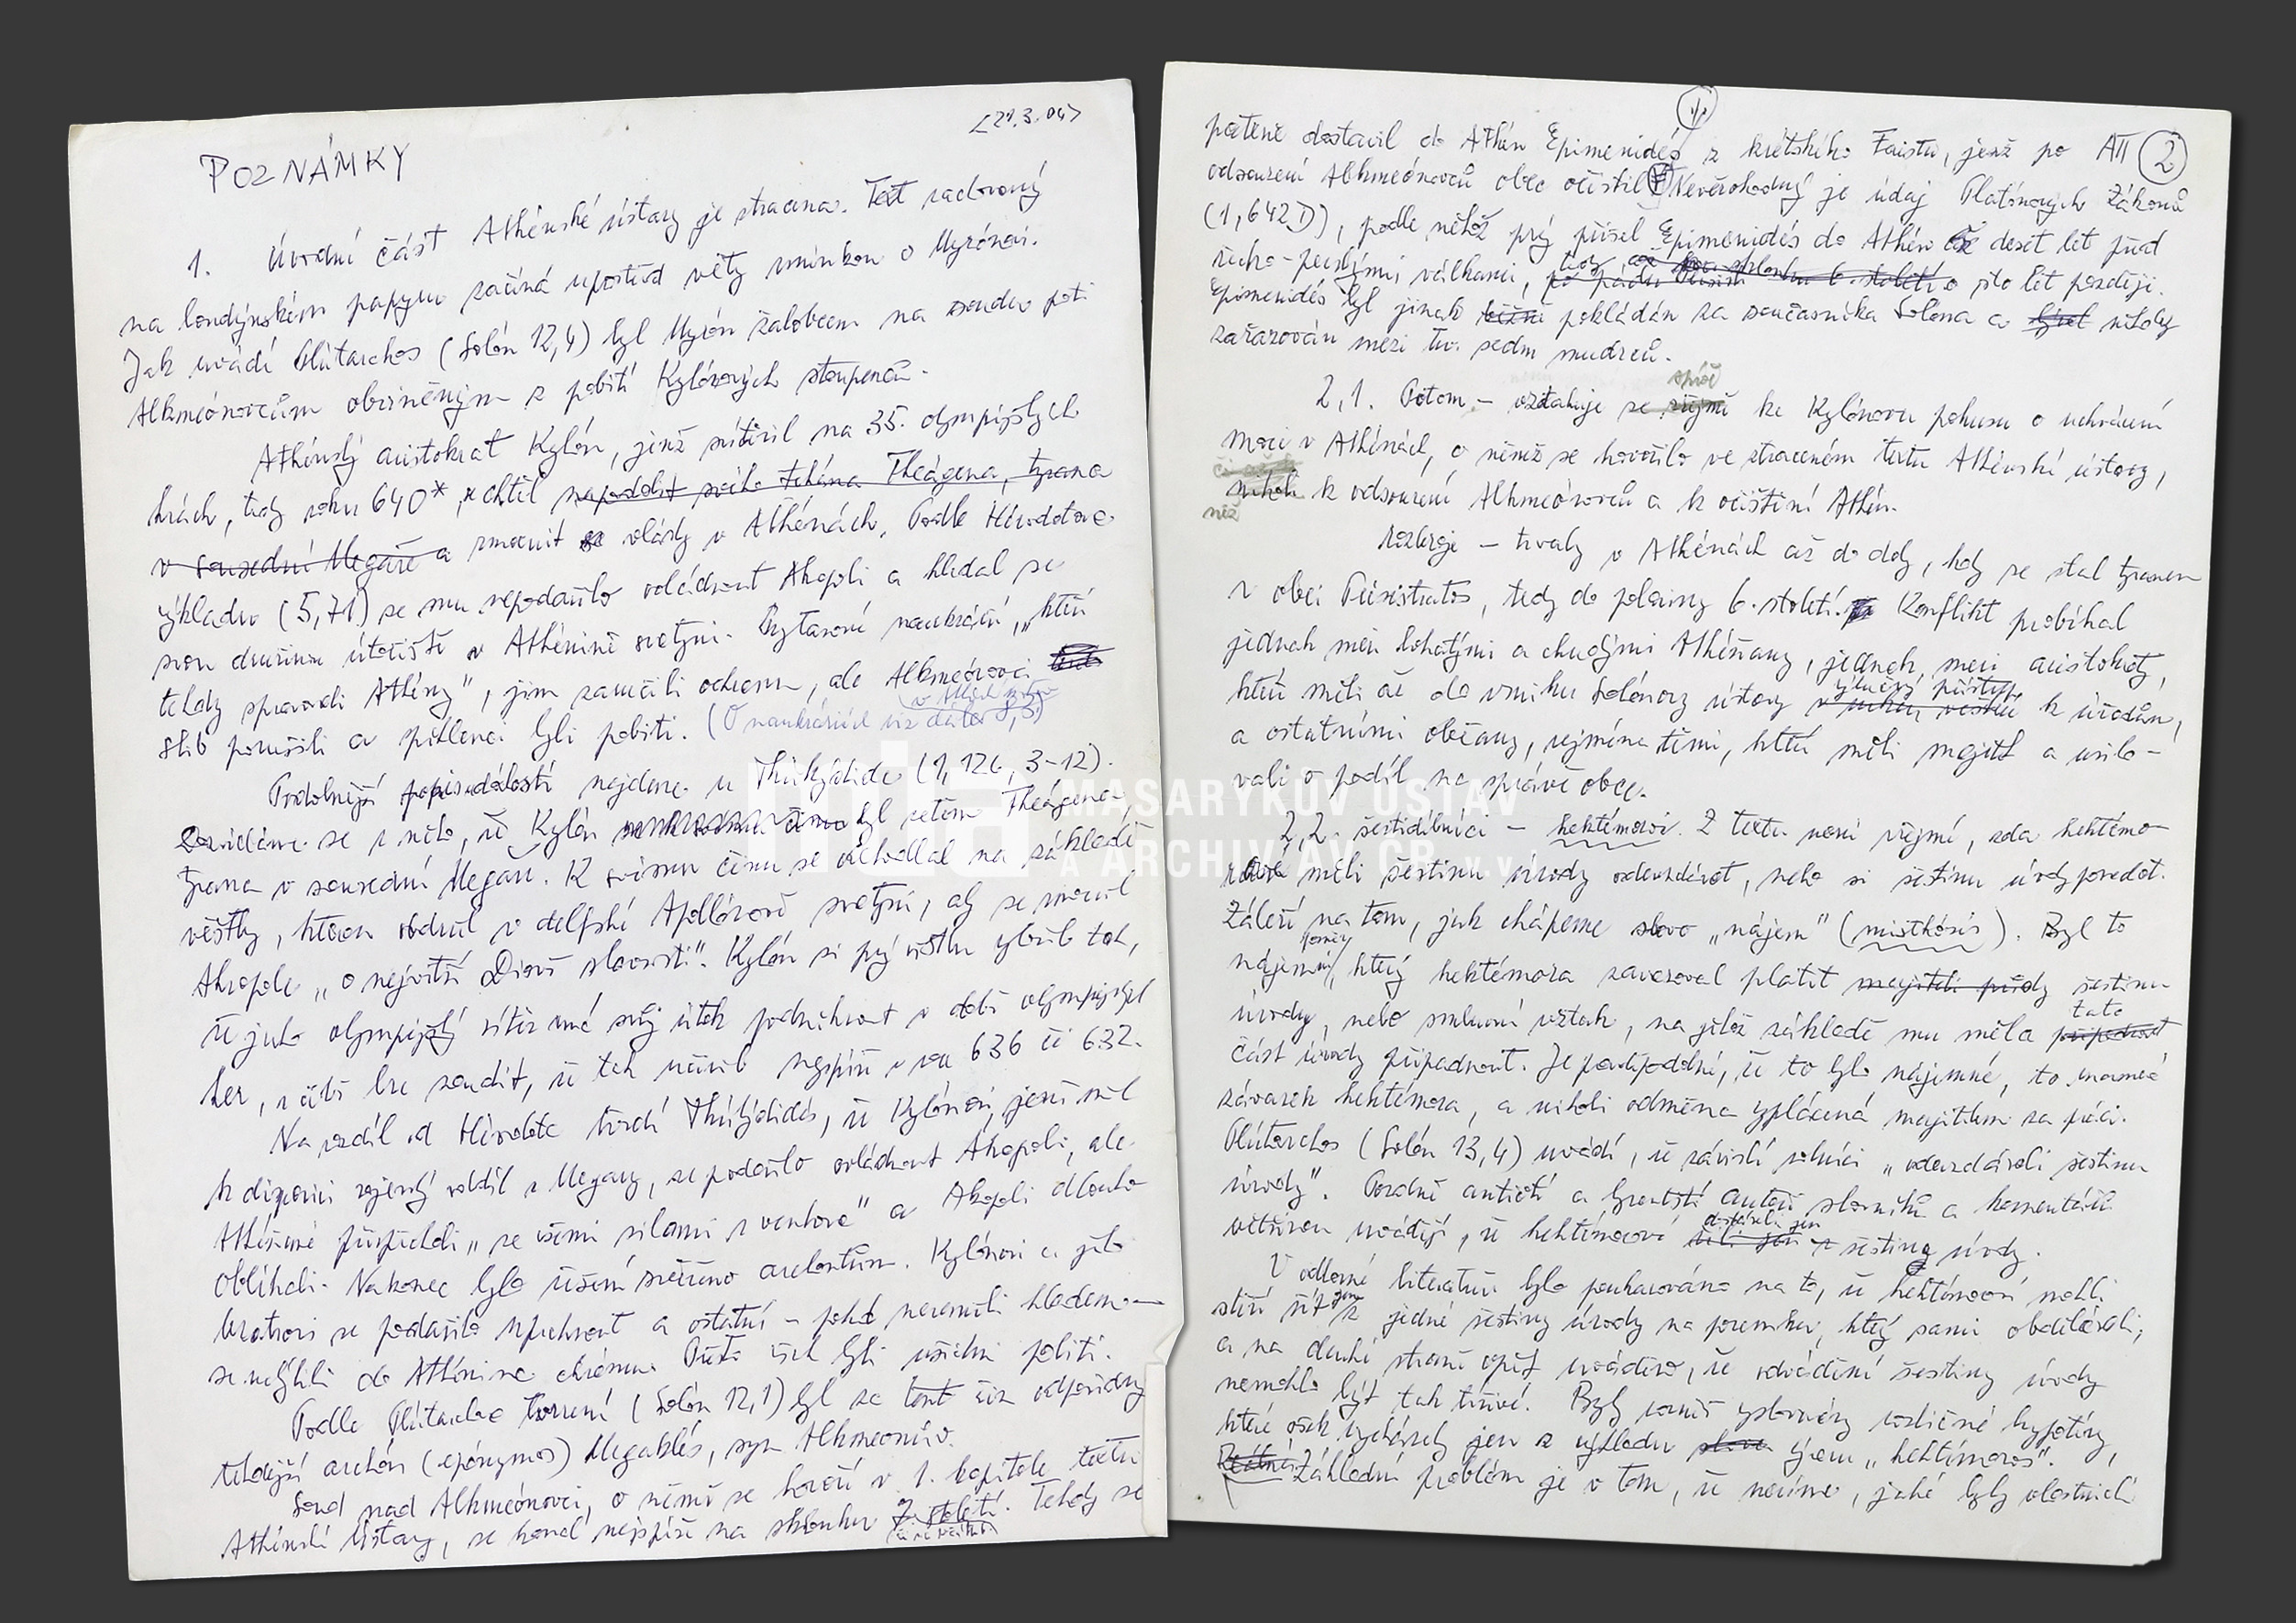 <21.3.04>
POZNÁMKY
1. Úvodní část Athénské ústavy je ztracena. Text zachovaný
na londýnském papyru začíná uprostřed věty zmínkou o Myrónovi.
Jak uvádí Plútarchos (Solón 12,4) byl Myrón žalobcem na soudu proti
Alkmeónovcům obviněným z pobití Kylónových stoupenců.
Athénský aristokrat Kylón, jenž zvítězil na 35. olympijských
hrách, tedy roku 640*, chtěl napodobit svého tchána Theágena, tyrana
v sousední Megaře a zmocnit se vlády v Athénách. Podle Hérodotova
výkladu (5,71) se mu nepodařilo ovládnout Akropoli a hledal se
svou družinou útočiště v Athénině svatyni. Prytanové naukrárií, „kteří
tehdy spravovali Athény", jim zaručili ochranu, ale Alkmeónovci
slib porušili a spiklenci byli pobiti. (O naukráriích viz dále 8,3)
Podrobnější popis událostí najdeme u Thúkýdida (1,126, 3-12).
Dovídáme se z něho, že Kylón byl zetěm Theágena,
tyrana v sousední Megaře. K svému činu se odhodlal na základě
věštby, kterou obdržel v delfské Apollónově svatyni, aby se zmocnil
Akropole „o největší Diově slavnosti". Kylón si prý věštbu vyložil tak,
že jako olympijský vítěz má svůj útok podniknout v době olympijských
her, z čehož lze soudit, že tak učinil nejspíše v roce 636 či 632.
Na rozdíl od Hérodota tvrdí Thúkýdidés, že Kylónovi, jenž měl
k dispozici vojenský oddíl z Megary, se podařilo ovládnout Akropoli, ale
Athéňané přispěchali „se všemi silami z venkova" a Akropoli dlouho
obléhali. Nakonec bylo řešení svěřeno archontům. Kylónovi a jeho
bratrovi se podařilo uprchnout a ostatní – pokud nezemřeli hladem –
se uchýlili do Athénina chrámu. Přesto však byli všichni pobiti.
Podle Plútarchova tvrzení (Solón 12,1) byl za tento čin odpovědný
tehdejší archón (epónymos) Megaklés, syn Alkmeonův.
Soud nad Alkmeónovci, o němž se hovoří v 1. kapitole textu
Athénské ústavy, se konal nejspíše na sklonku 7. století. Tehdy se
AΠ 2
patrně dostavil do Athén Epimenidés z krétského Faistu, jenž po
odsouzení Alkmeónovců obec očistil. Nevěrohodný je údaj Platónových Zákonů
(1,642D), podle něhož prý přišel Epimenidés do Athén až deset let před
řecko-perskými válkami, tedy o sto let později.
Epimenidés byl jinak běžně pokládán za současníka Solóna a byl někdy
zařazován mezi tzv. sedm mudrců.
2,1. Potom – vztahuje se spíš ke Kylónovu pokusu o uchvácení
moci v Athénách, o němž se hovořilo ve ztraceném textu Athénské ústavy,
než k odsouzení Alkmeónovců a k očištění Athén.
rozbroje – trvaly v Athénách až do doby, kdy se stal tyranem
v obci Peisistratos, tedy do poloviny 6. století. Konflikt probíhal
jednak mezi bohatými a chudými Athéňany, jednak mezi aristokraty,
kteří měli až do vzniku Solónovy ústavy výlučný přístup k úřadům,
a ostatními občany, zejména těmi, kteří měli majetek a usilo-
vali o podíl na správě obce.
2,2. šestidílníci – hektémoroi. Z textu není zřejmé, zda hektémo-
rové měli šestinu úrody odevzdávat, nebo si šestinu úrody ponechat.
Záleží na tom, jak chápeme slovo „nájem" (misthósis). Byl to
nájemní poměr, který hektémora zavazoval platit majiteli půdy šestinu
úrody, nebo smluvní vztah, na jehož základě mu měla tato
část úrody připadnout. Je pravděpodobné, že to bylo nájemné, to znamená
závazek hektémora, a nikoli odměna vyplácená majitelem za práci.
Plútarchos (Solón 13,4) uvádí, že závislí rolníci „odevzdávali šestinu
úrody". Pozdně antičtí a byzantští autoři slovníků a komentářů
většinou uvádějí, že hektémorové dostávali jen šestinu úrody.
V odborné literatuře bylo poukazováno na to, že hektémorové mohli
stěží žít jen z jedné šestiny úrody na pozemku, který sami obdělávali,
a na druhé straně opět uváděno, že odvádění šestiny úrody
nemohlo být tak tíživé. Byly rovněž vysloveny rozličné hypotézy,
které však vycházely jen z výkladu slova výrazu „hektémoros".
Základní problém je v tom, že nevíme, jaké byly vlastnické
MASARYKŮV ÚSTAV
A ARCHIV AV ČR, v. v. i.